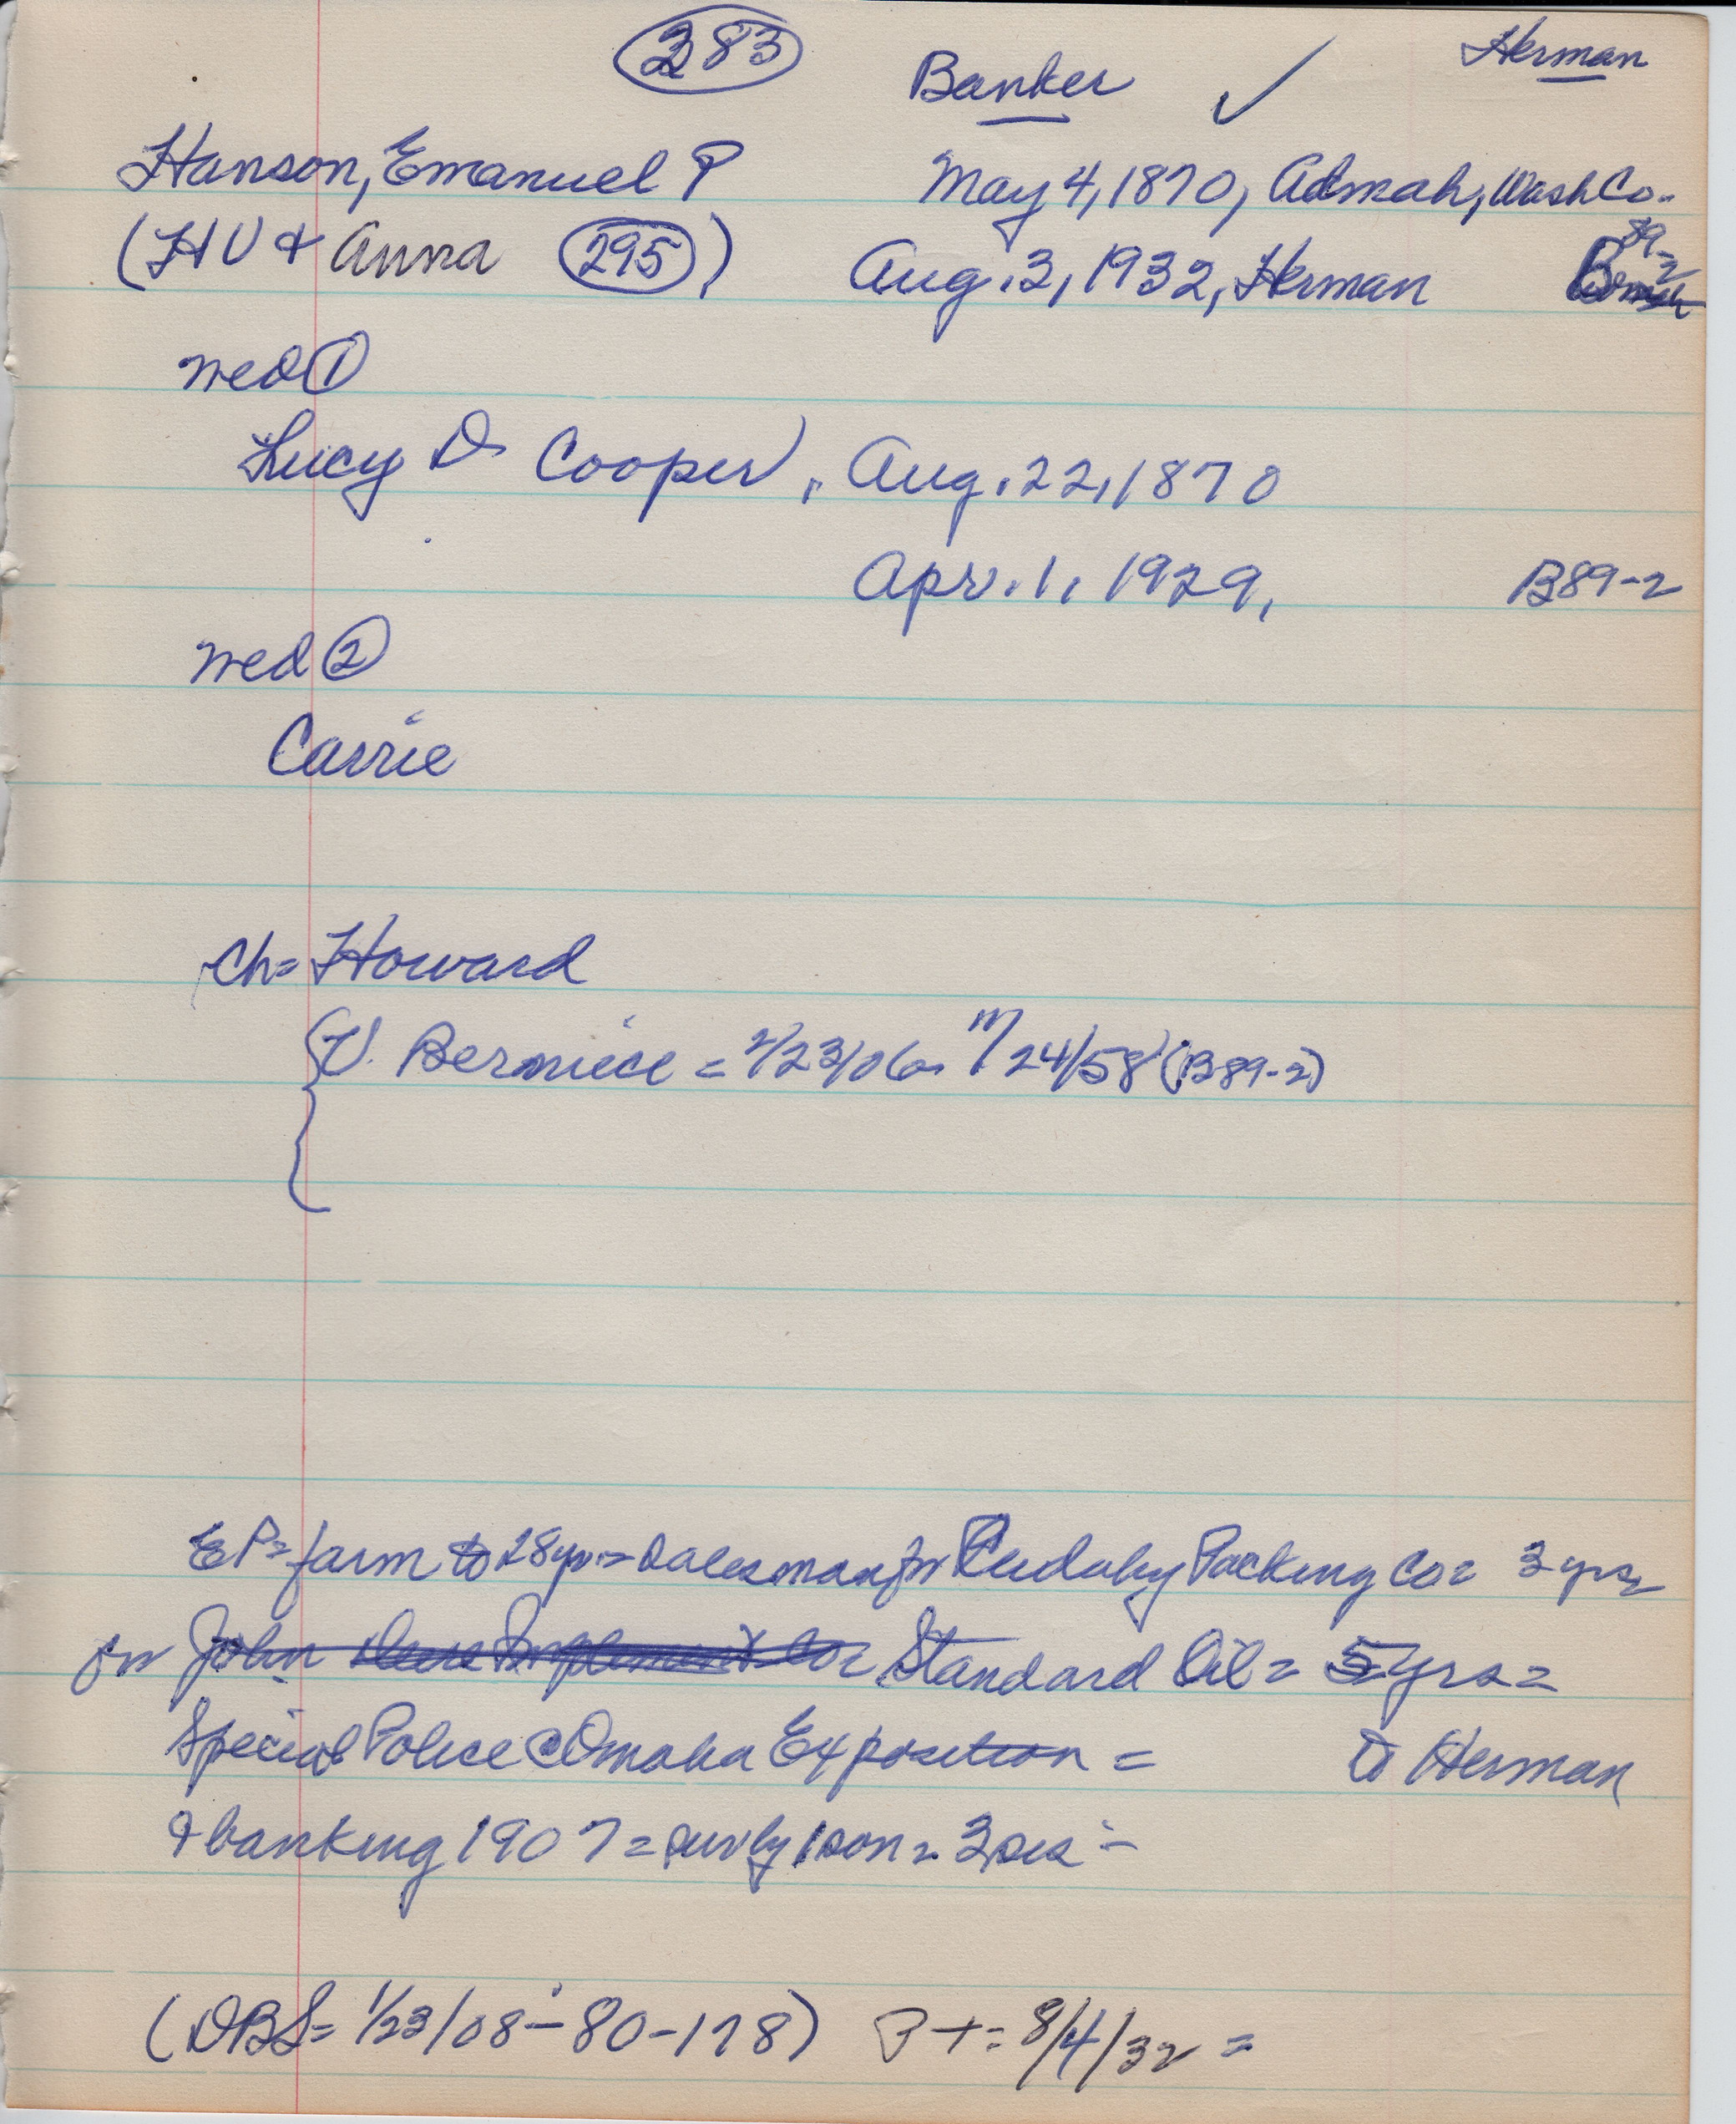 283 Banker ✓ Herman
Hanson, Emanuel P May 4, 1870, Admah, Wash Co.
(HV & Anna 295) Aug. 3, 1932, Herman B 89-2
med 1
Lucy D Cooper, Aug. 22, 1870
Apr. 1, 1929, B89-2
med 2
Carrie
Ch= Howard
{V. Berniece = 2/23/06. 11/24/58 (B89-2)
EP= farm to 28 yr.= salesman for Cudahy Packing Co= 3 yrs=
for John Deere Implement Co= Standard Oil = 5 yrs =
Special Police @ Omaha Exposition = to Herman
& banking 1907 = surv by 1 son = 3 sis =
(DBS= 1/23/08 - 80-178) PT= 8/4/32 =